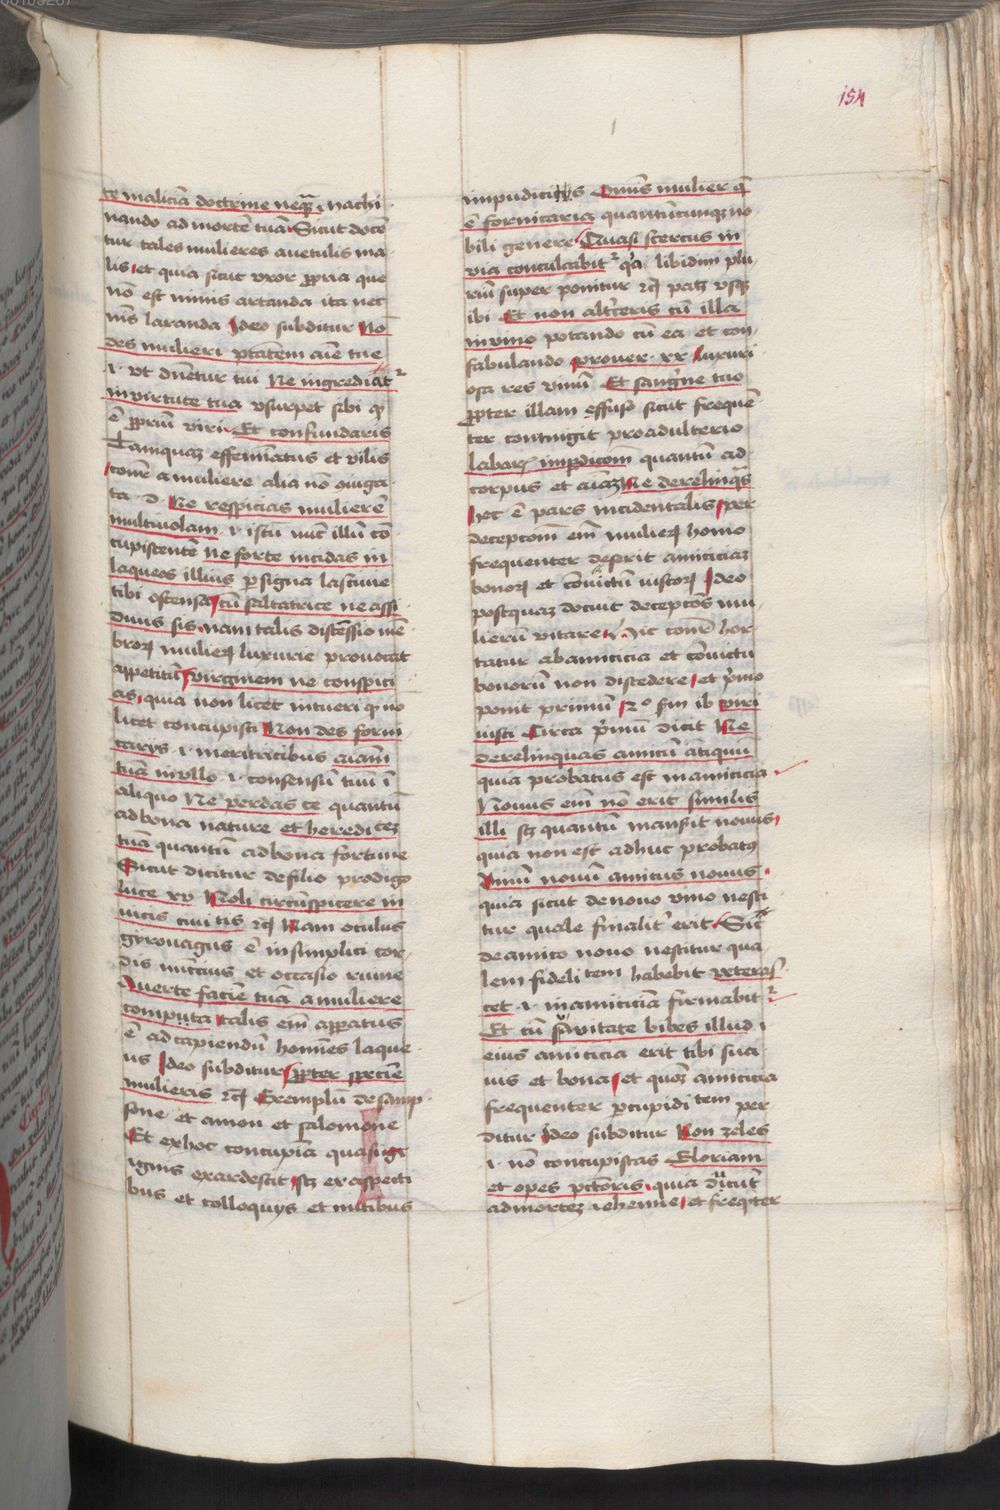 154
te maliciā doctrine neq̄ȝ · nachi
nando ad mortē tuā Sicut docē
tur tales mulieres a uetulis ma
lis et quia sicut vxor ꝓpria que
nō est nimis artanda ita nec
nīs laxanda Ideo subditur No
des mulieri ptātem aīe tue
·i· vt dn̄etur tui Ne ingrediat᷑
in virtute tua vsurpet sibi qd
ē ꝓpriū viri Et confundaris
Tamquaȝ effemīatus et vilis
cone a muliere alia nō ouiga
ta ·d· Ne respicias mulierē
multiuolam ·i· istū nūc illū cō
cupiscentē ne forte incidas in
laqueos illius ꝑ signa lasciuie
tibi ostensa cū saltatrice ne assi
duus sis nam talis discēssio mē
broꝝ mulieꝝ luxurie prouocat
appetitū virginem ne conspici
as quia non licet intueri qd nō
licet concupisci Non des forni
carijs ·i· meritricibus aīam
tuā in vllo ·i· consensū tuū ī
aliquo Ne perdas te quantū
ad bona nature et heredicteȝ
tuā quantū ad bona fortune
Sicut dicitur de filio prodigo
luce xv Noli circūspicere in
uicis ciuitatis ⁊cꝫ Nam oculus
gyrouagus ē in simplici cor
dis nūccius et occasio ruine
Auerte faciē tuā a muliere
compta talis eīm apparatus
ē ad capiendū homīes laque
us Ideo subditur ꝓpter speciē
mulieris ⁊cꝫ Exemplū de samp
sone et amon et salomone
Et ex hoc concupīa quasi
ignis exardescit scȝ ex aspecti
bus et colloquijs et nutibus
impudicis Omīs mulier q̄
ē fornicaria quantūcunqȝ no
bili genere Quasi stercus in
via conculcabit᷑ qꝛ libidini plu
riū super ponitur ⁊cꝫ patȝ vsqȝ
ibi Et non alt᷑ceris cū illa
in vino potando cū ea et con
fabulando prouer· xx luxuri
osa res vinū Et sangīne tuo
ꝓpter illam effuso sicut frequē
ter contingit pro adulterio
labaꝝ in pdicōm quantū ad
corpus et aīaȝ Ne derelinq̄s
hec ē pars incidentalis per
decepcōm eīm mulieꝝ homo
frequenter deserit amiciciaȝ
bonoꝝ et cōuictū iustoꝝ Ideo
postquaȝ docuit decepcōs mu
lierū vitare hic cōnr hor
tatur ab amicicia et cōuictu
bonorū non discedere et p̄mo
ponit primū 2° sm̄ ib viri
iusti Circa p̄mū dicit Ne
derelinquas amicū ātiquū
quia probatus est in amicicia
Nouus eīm nō erit similis
illi scȝ quantū manserit nouus
quia non est adhuc probatꝰ
Vinū nouū amicus nouus
quia sicut de nouo vino nesci
tur quale finalit᷑ erit Sic
de amico nouo nescitur qua
lem fidelitatem habebit veteras
cet ·i· in amiciciā firmabit᷑
Et cū suauitate bibes illud ·i·
eius amicicia erit tibi sua
uis et bona et quoȝ amicicia
frequenter ꝑ cupiditatem per
ditur Ideo subditur Non zeles
·i· nō concupiscas Gloriam
et opes pctōris quia ducūt
ad morteȝ iehenne et freqꝫter